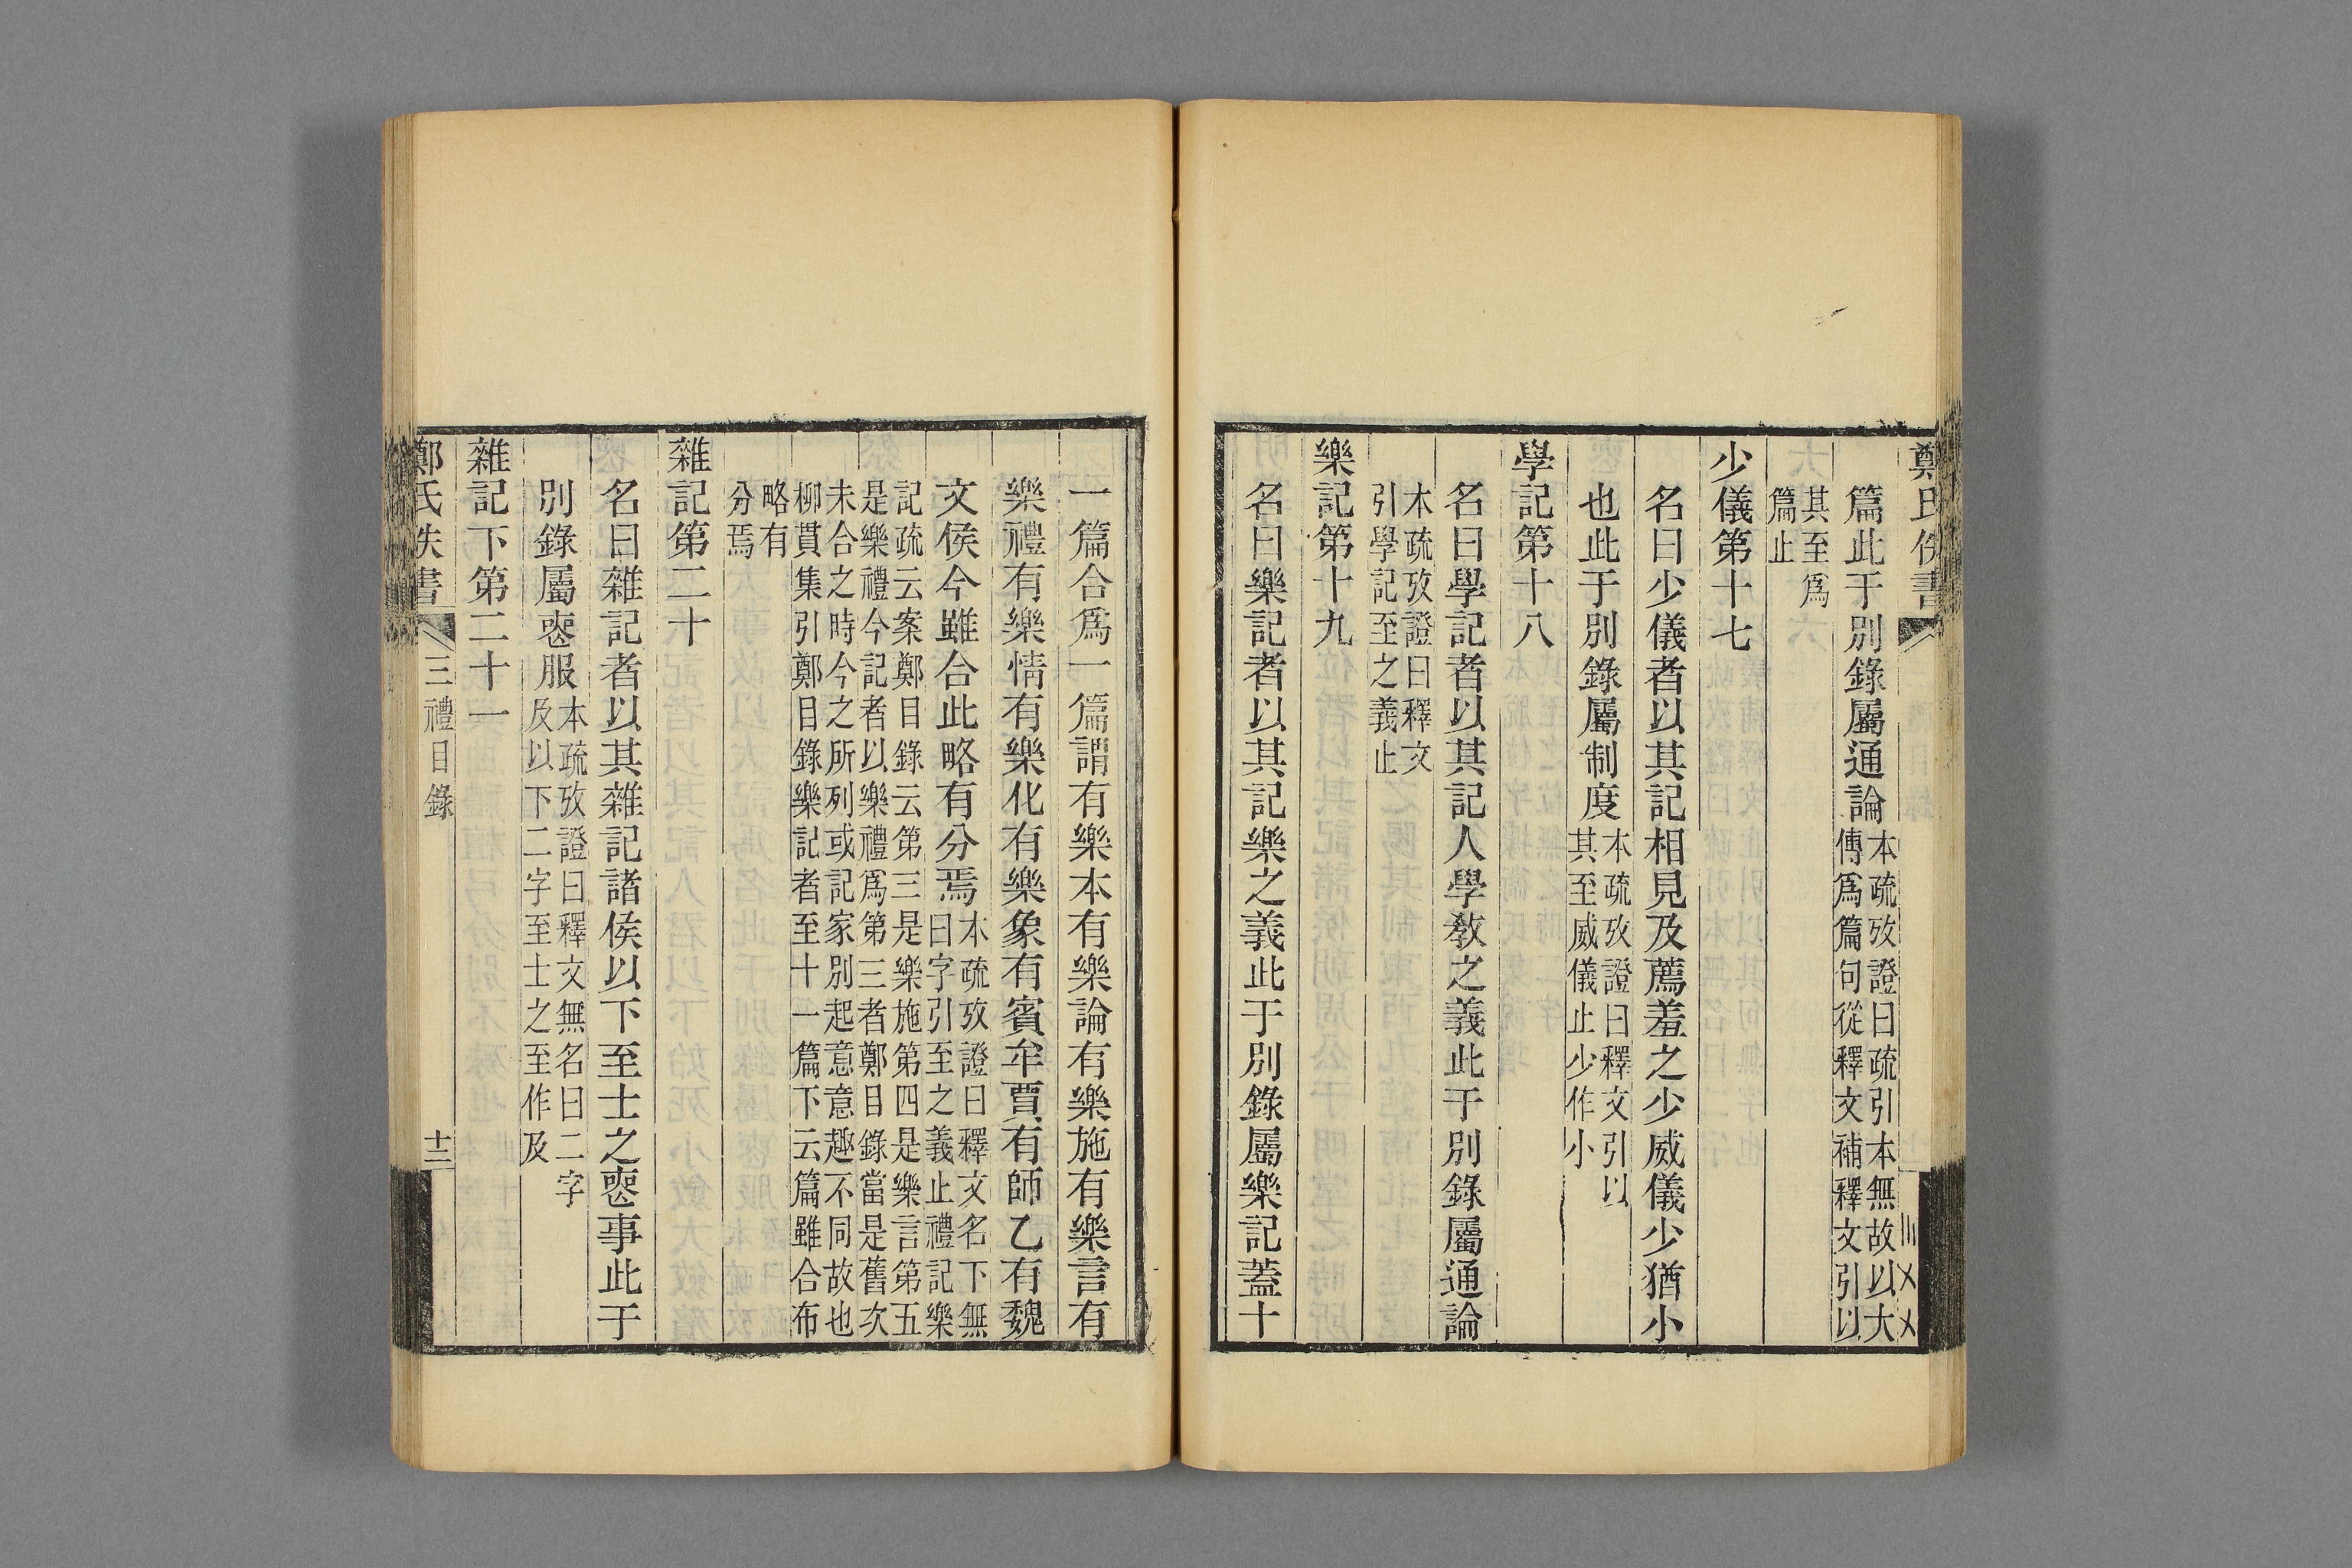 鄭氏佚書
篇此于別錄屬通論本疏攷證曰疏引本無故以大
傳爲篇句從釋文補釋文引以
其至爲
篇止
少儀第十七
名曰少儀者以其記相見及薦羞之少威儀少猶小
也此于別錄屬制度本疏攷證曰釋文引以
其至威儀止少作小
學記第十八
名曰學記者以其記人學敎之義此于別錄屬通論
本疏攷證曰釋文
引學記至之義止
樂記第十九
名曰樂記者以其記樂之義此于別錄屬樂記蓋十
一篇合爲一篇謂有樂本有樂論有樂施有樂言有
樂禮有樂情有樂化有樂象有賓牟賈有師乙有魏
文侯今雖合此略有分焉本疏攷證曰釋文名下無
曰字引至之義止禮記樂
記疏云案鄭目錄云第三是樂施第四是樂言第五
是樂禮今記者以樂禮爲第三者鄭目錄當是舊次
未合之時今之所列或記家別起意意趣不同故也
柳貫集引鄭目錄樂記者至十一篇下云篇雖合布
略有
分焉
雜記第二十
名曰雜記者以其雜記諸侯以下至士之喪事此于
別錄屬喪服本疏攷證曰釋文無名曰二字
及以下二字至士之至作及
雜記下第二十一
鄭氏佚書
三禮目錄
十二